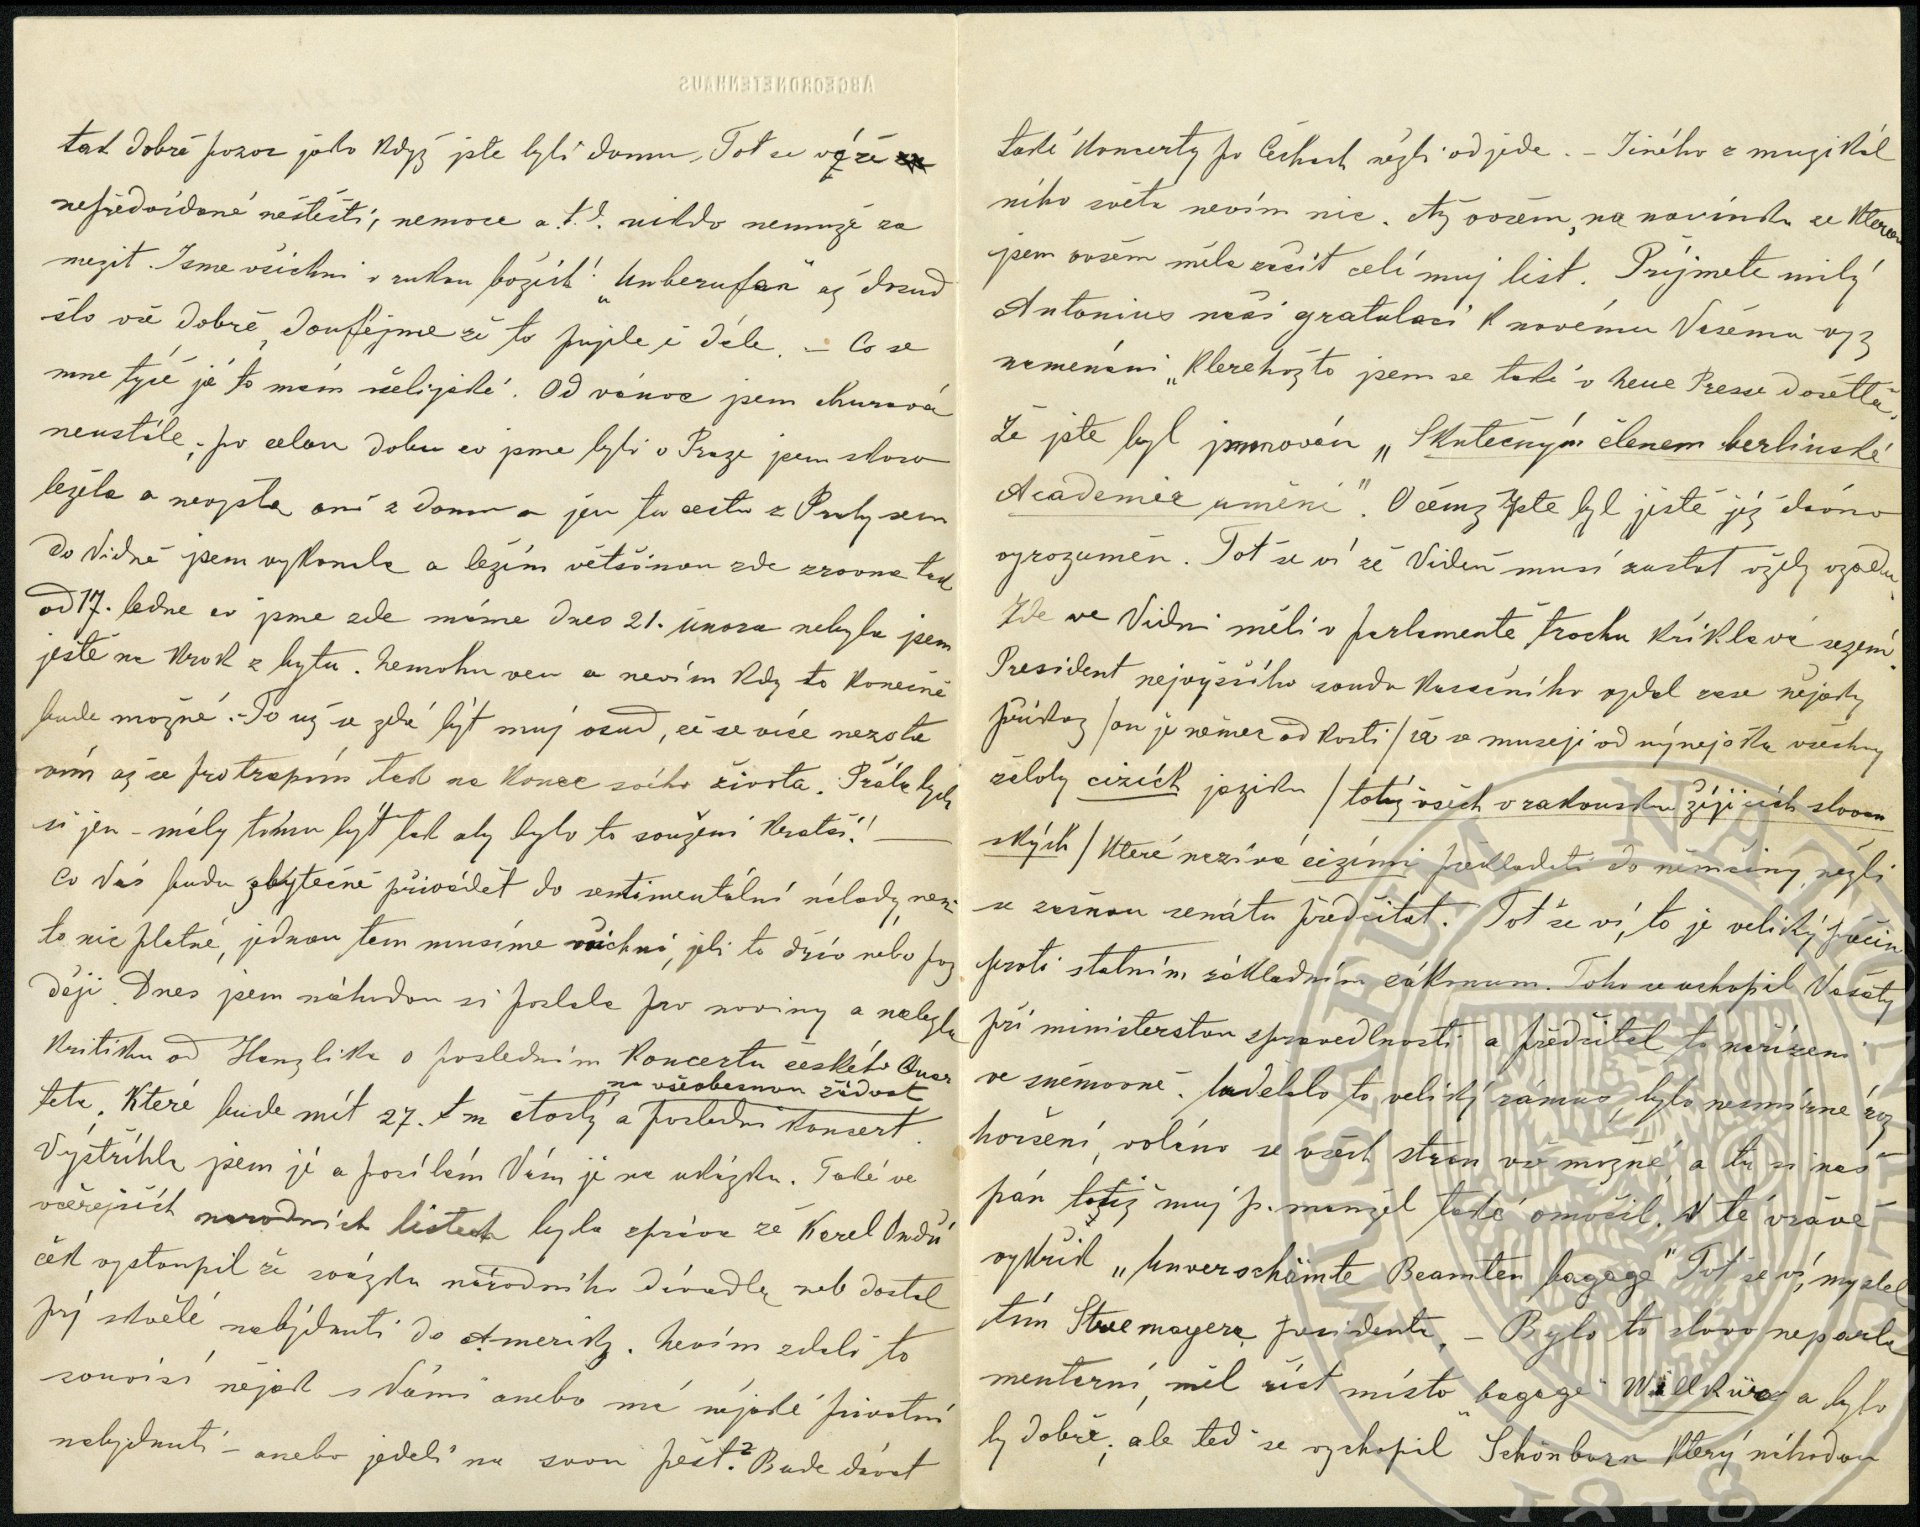 ABGEORDNETENHAUS
tak dobrě pozor jako když jste byli doma, Tot se ví že
nepředvídané neštěstí, nemoce a.t.d. nikdo nemuže za
mezit. Jsme všichni v rukou božích! „Unberufen" až dosud
šlo vše dobrě, doufejme že to pujde i dále. – Co se
mne týče já to mám všelijaké. Od vánoc jsem churavá
neustále, po celou dobu co jsme byli v Praze jsem skoro
ležela a nevyšla ani z domu a jen tu cestu z Prahy sem
do Vidně jsem vykonala a ležím většinou zde zrovna tak
od 17. ledna co jsme zde máme dnes 21. února nebyla jsem
ještě na krok z bytu. Nemohu ven a nevím kdy to konečně
bude možné. – To už se zdá být muj osud, že se více nezota
vím až se protrapím tak na konec svého života. Přála bych
si jen – měly tomu být tak aby bylo to soužení kratší! —
Co Vás budu zbytečně přivádět do sentimentální nálady, není
to nic platné, jednou tam musíme všichni, jeli to dřív nebo poz
ději. Dnes jsem náhodou si poslala pro noviny a nalezla
kritiku od Hanzlika o posledním koncertu českého Quar
teta, Které bude mít 27. t m čtvrtý a poslední koncert.
na všeobecnou žádost
Výstřihla jsem jí a posílám Vám jí na ukázku. Také ve
včerejších narodních listech byla zpráva že Karel Ondří
ček vystoupil ze svazku národního divadla neb dostal
prý skvělé nabýdnutí do Ameriky. Nevím zdali to
souvisí nějak s Vámi anebo má nějaké privatní
nabydnutí – anebo jedeli na svou pěst? Bude dávat
také koncerty po Čechach nězli odjede. – Jiného z muzikál
ního světa nevím nic. Až ovšem, na novinku se kterou
jsem ovšem měla začít celí muj list. Prijmete milý
Antonius naši gratulaci k novému Vasému vyz
namenání „Kterehožto jsem se také v Neue Presse dočetla".
Že jste byl jmenován „Skutečným členem berlinské
Academie umění". O čemz jste byl jistě jiz dávno
vyrozuměn. Tot se ví že Videň musí zustat vždy vzadu.
Zde ve Vidni měli v parlamentě trochu křiklavé sezení.
President nejvyššího soudu kasačního vydal zase nějaky
příkaz /on je němec od kosti/ že se museji od nýnejška všechny
žaloby cizích jaziku /totiz všech v rakousku žíjicích slovan
ských/ které nazívá cizími překladati do němčiny, něžli
se začnou senátu předčítat. Tot se ví, to je veliký přečin
proti statním základním zákonum. Toho se uchopil Vašatý
při ministerstvu spravedlnosti a předčital to nařízení
ve sněmovně. Udělalo to veliký rámus, bylo nesmírné roz
hořšení, voláno se všech stran vše možné, a tu si náš
pán totiz muj p. manžel také omočil. V té vřavě
vykřik „Unverschämte Beamten bagage" Tot se ví, myslel
tím Stremayera presidenta, – Bylo to slovo neparla
mentarní, měl říct místo „bagage" Willkür a bylo
by dobře, ale ted se vychopil Schönborn který náhodou